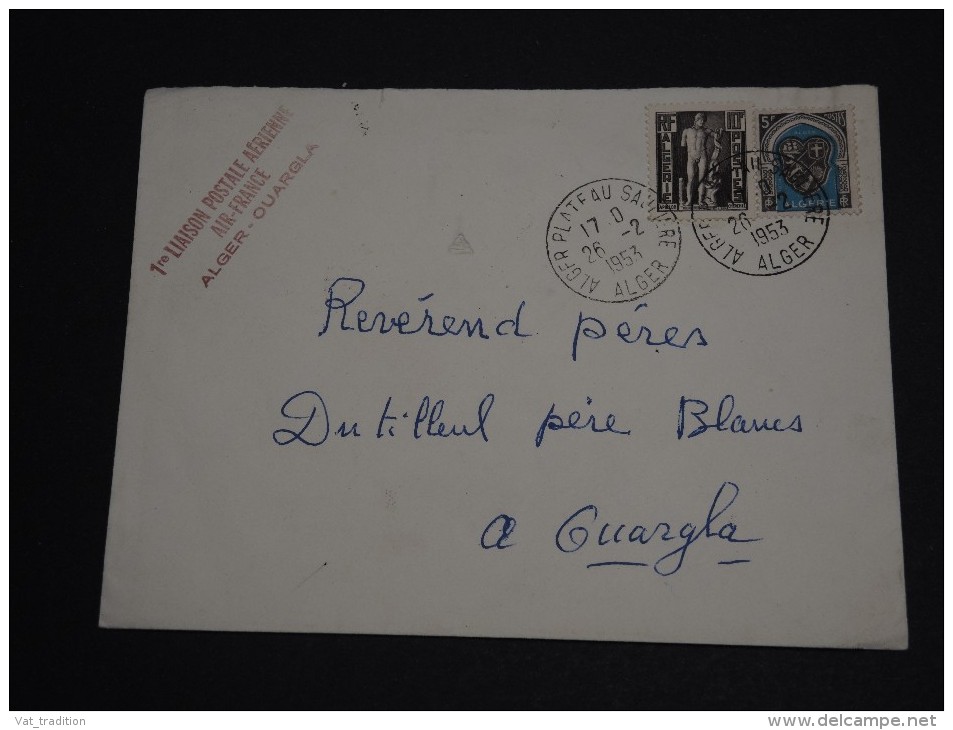 1re LIAISON POSTALE AÉRIENNE
AIR-FRANCE
ALGER - OUARGLA
RF
ALGERIE
POSTES
5F
POSTES
ALGERIE
ALGER PLATEAU SAULIERE
17 0
26 -2
1953
ALGER
26
1953
ALGER
Revérend péres
Dutilleul pére Blancs
a Ouargla
Vat_tradition
www.delcampe.net